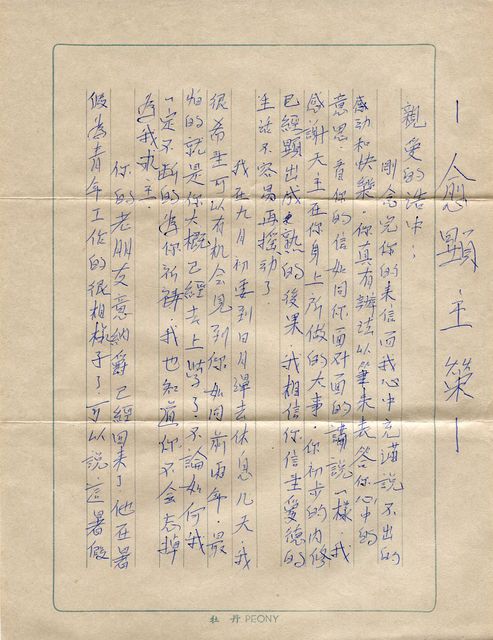 — 愈顯主榮 —
親愛的浩中:
剛念完你的來信而我心中充滿說不出的
感動和快樂·你真有辦法以筆來表答你心中的
意思·看你的信如同你面对面的講說一樣·我
感謝天主在你身上所做的大事·你初步的內修
已經顯出成熟的後果·我相信你信主愛德的
生活不容易再搖动了·
我在九月初要到日月潭去休息几天·我
很希望可以有机会見到你如同前兩年·最
怕的就是你大概已經去上學了不論如何我
一定不断的為你祈禱·我也知道你不会忘掉
為我求主
你的老朋友意納爵已經回来了他在暑
假為青年工作的很相樣子了可以說這暑假
牡 丹 PEONY